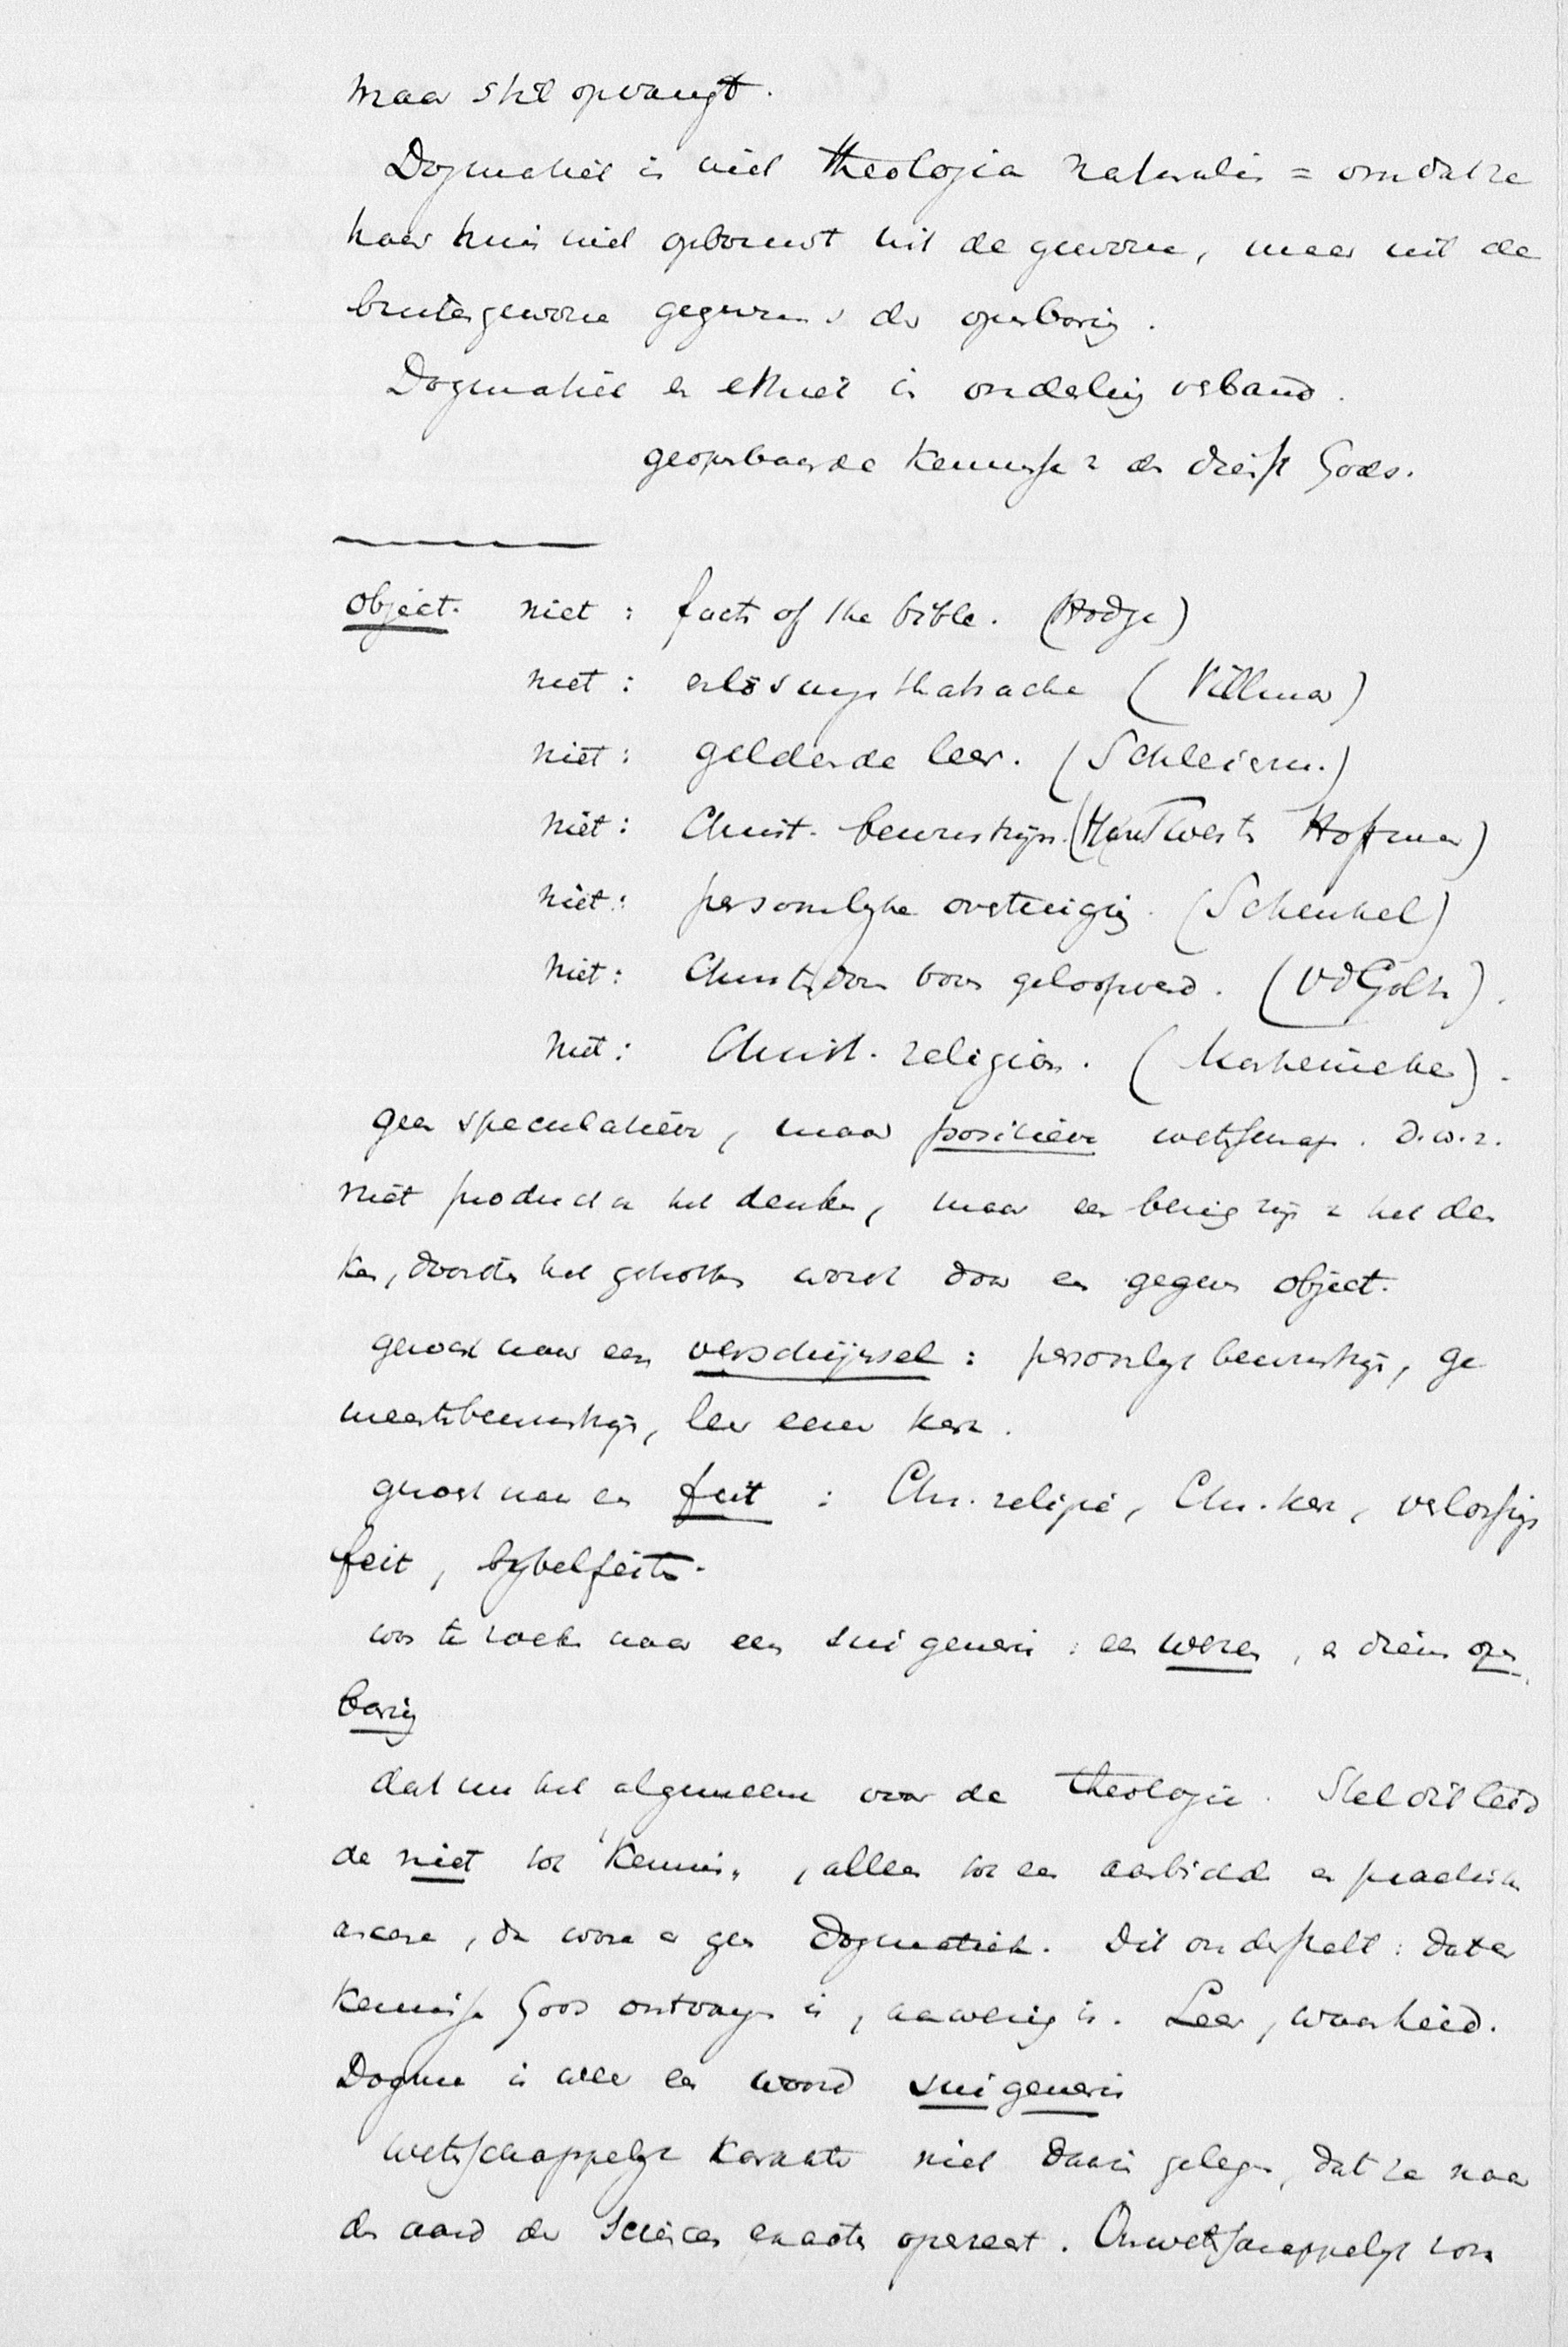 maar stil opvangt.
Dogmatiek is niet theologia naturalis = omdat ze
haar huis niet opbouwt uit de gewone, maar uit de
buitengewone gegevens der openbaring.
Dogmatiek en ethiek in onderling verband.
geopenbaarde kennisse der Gods.
object. niet : facts of the bible. (Hodge)
niet : erlösungsthatsache (Villmar)
niet : geldende leer. (Schleierm.)
niet : Christ. bewustzijn. (Twesten Hofman)
niet : persoonlyke overtuiging. (Schenkel)
niet : Christendom voor geloofs (vd Goltz).
niet : Christ. religion. (Marheineke).
geen speculatieve, maar positieve wetenschap. d.w.z.
niet product van het denken, maar een bezig zijn van het den
ken, doordat het getrokken wordt door een gegeven object.
gezocht naar een verschijnsel : persoonlyk bewustzijn, ge
meentebewustzijn, leer eener kerk.
gezocht naar een feit : Chr. religie, Chr. kerk, verlossings
feit, bybelfeiten.
was te zoeken naar een sui generis : een wezen, en diens open
baring
dat nu het algemeene voor de theologie. Stel dit leid
de niet tot "kennis", alleen tot een aanbidden en practische
ascese, dan ware er geen Dogmatiek. Dit onderstelt : dat er
kennisse Gods ontvangen is, aanwezig is. Leer, waarheid.
Dogma is weer een woord sui generis
wetenschappelyk karakter niet daarin gelegen, dat ze naar
den aard der sciences exactes opereert. Onwetenschappelyk zou